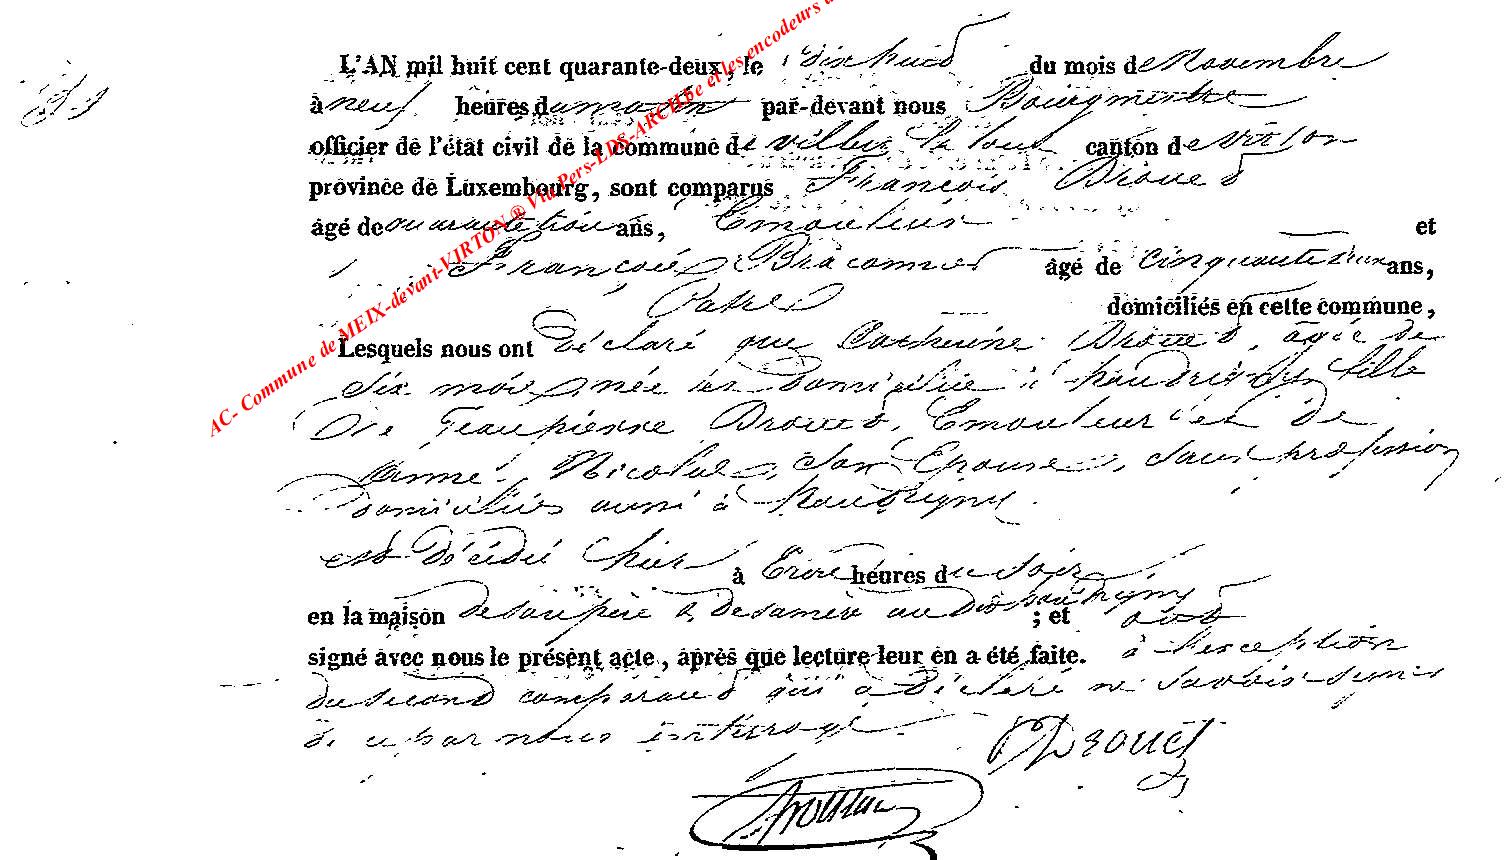 L'AN mil huit cent quarante-deux, le dix huit du mois de Novembre
à neuf heures du matin par-devant nous Bourgmestre
officier de l'état civil de la commune de villers la loue canton de virton
province de Luxembourg, sont comparus François Drouet
âgé de quarante trois ans, Emouleur et
François Braconnier âgé de cinquante deux ans,
Patre domiciliés en cette commune,
Lesquels nous ont déclaré que Catherine Drouet, âgée de
six mois née et domiciliée à houdrigny fille
de Jeanpierre Drouet, Emouleur et de
Nicolas, son Epouse, sans profession
domiciliés aussi à houdrigny
est décédée hier à trois heures du soir
en la maison de son père & de sa mère au dit houdrigny ; et ont
signé avec nous le présent acte, après que lecture leur en a été faite. à l'exception
du second comparant qui a déclaré ne savoir signer
de ce par nous interrogé.
Drouet
AC- Commune de MEIX-devant-VIRTON ® Via Pers-LDS-ARCH.be et les encodeurs